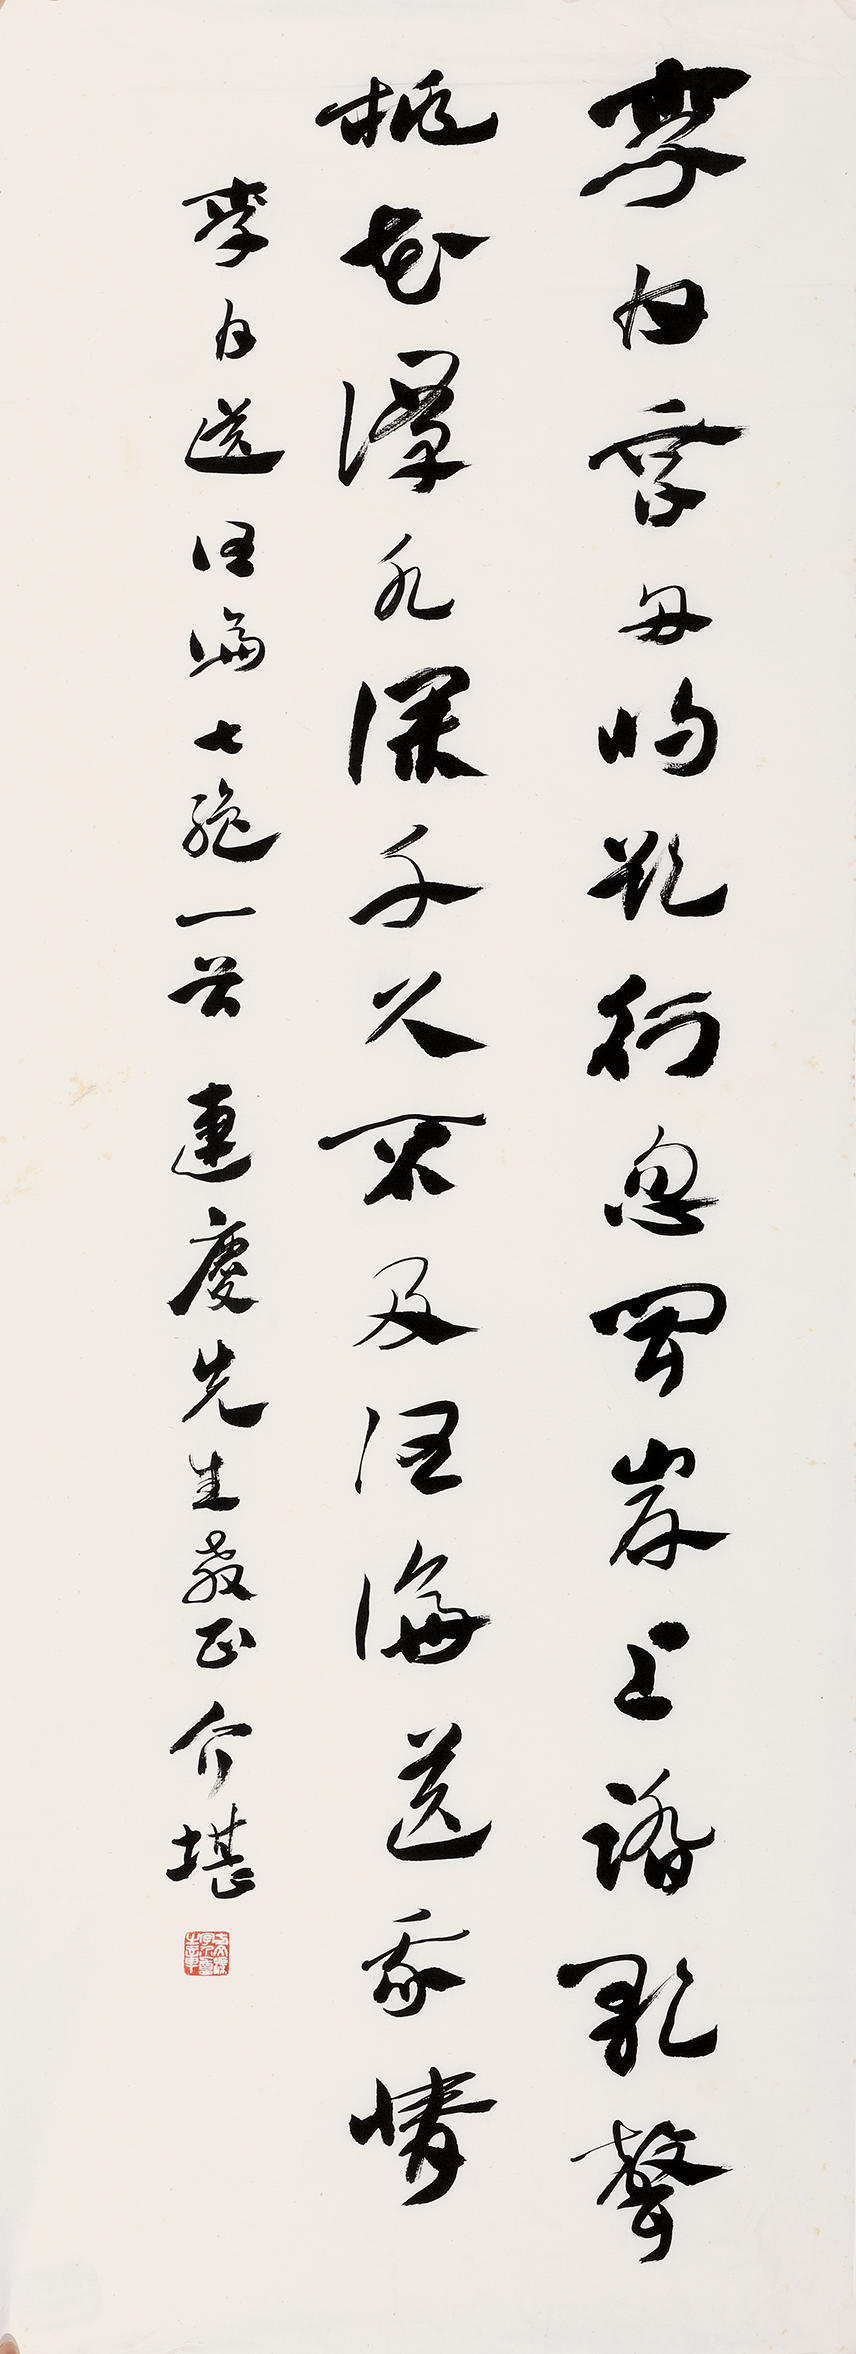 李白乘舟將欲行忽聞岸上踏歌聲
桃花潭水深千尺不及汪倫送我情
李白送汪倫七絕一首 連慶先生教正 介堪